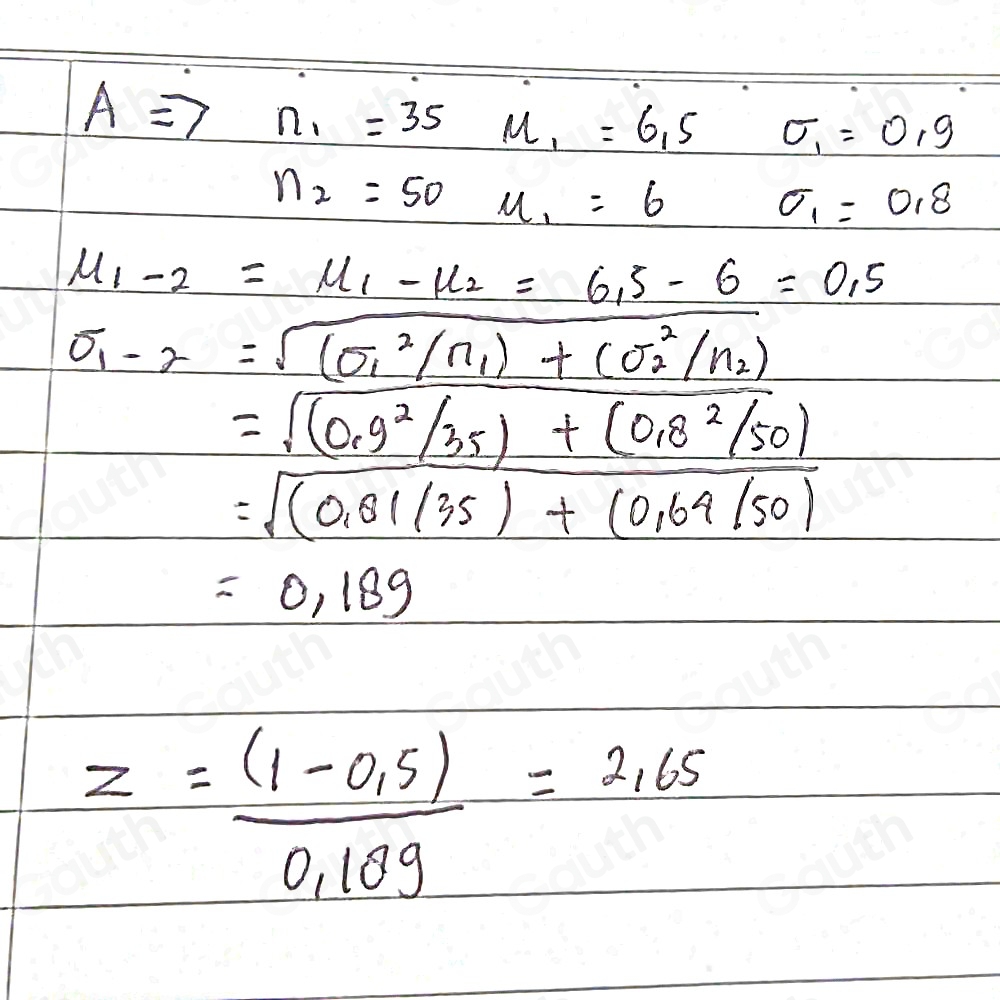 A => n₁ = 35 μ₁ = 6,5 σ₁ = 0,9
n₂ = 50 μ₁ = 6 σ₁ = 0,8
μ₁₋₂ = μ₁ - μ₂ = 6,5 - 6 = 0,5
σ₁₋₂ = √(σ₁²/n₁) + (σ₂²/n₂)
= √(0,9²/35) + (0,8²/50)
= √(0,81/35) + (0,64/50)
= 0,189
z = (1 - 0,5) = 2,65
0,189
Gauth